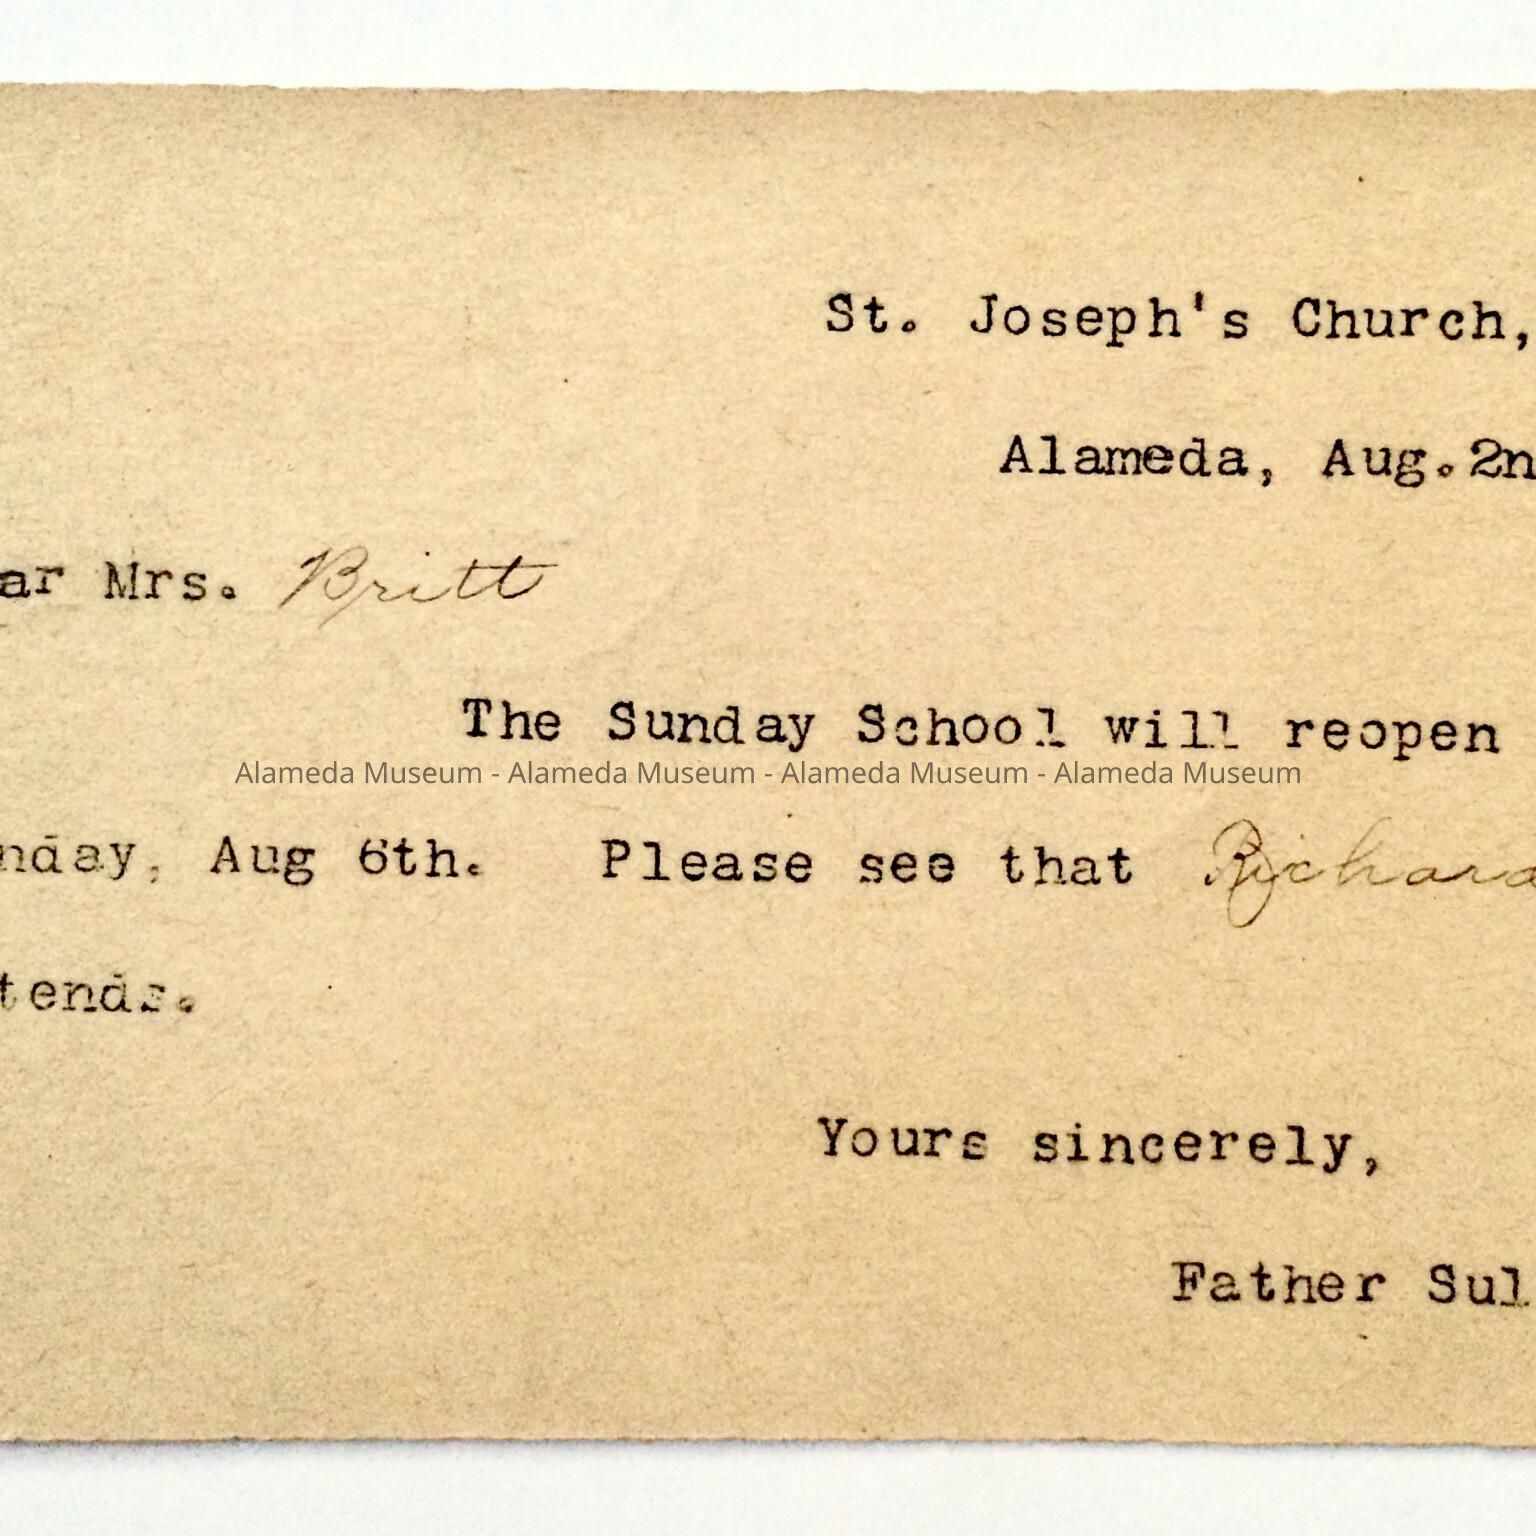 St. Joseph's Church,
Alameda, Aug.2n
ar Mrs. Britt
The Sunday School will reopen
Alameda Museum - Alameda Museum - Alameda Museum - Alameda Museum
nday, Aug 6th. Please see that Richard
tends.
Yours sincerely,
Father Sul